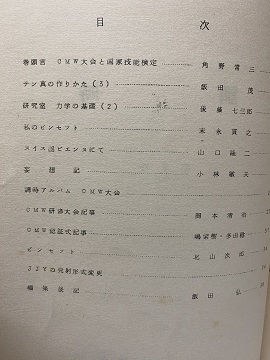 目 次
巻頭言 CMW大会と国家技能検定 角野常三
テン真の作りかた (3) 飯田 茂
研究室 力学の基礎 (2) 後藤七三郎
私のピンセット 末永貫之
スイス国ビエンヌにて 山口隆二
妄想記 小林敏夫
調時アルバム CMW大会
CMW研修大会記事
CMW認証式記事
ピンセット 北山次郎
32Yの発射形式変更
編集後記 飯田 弘